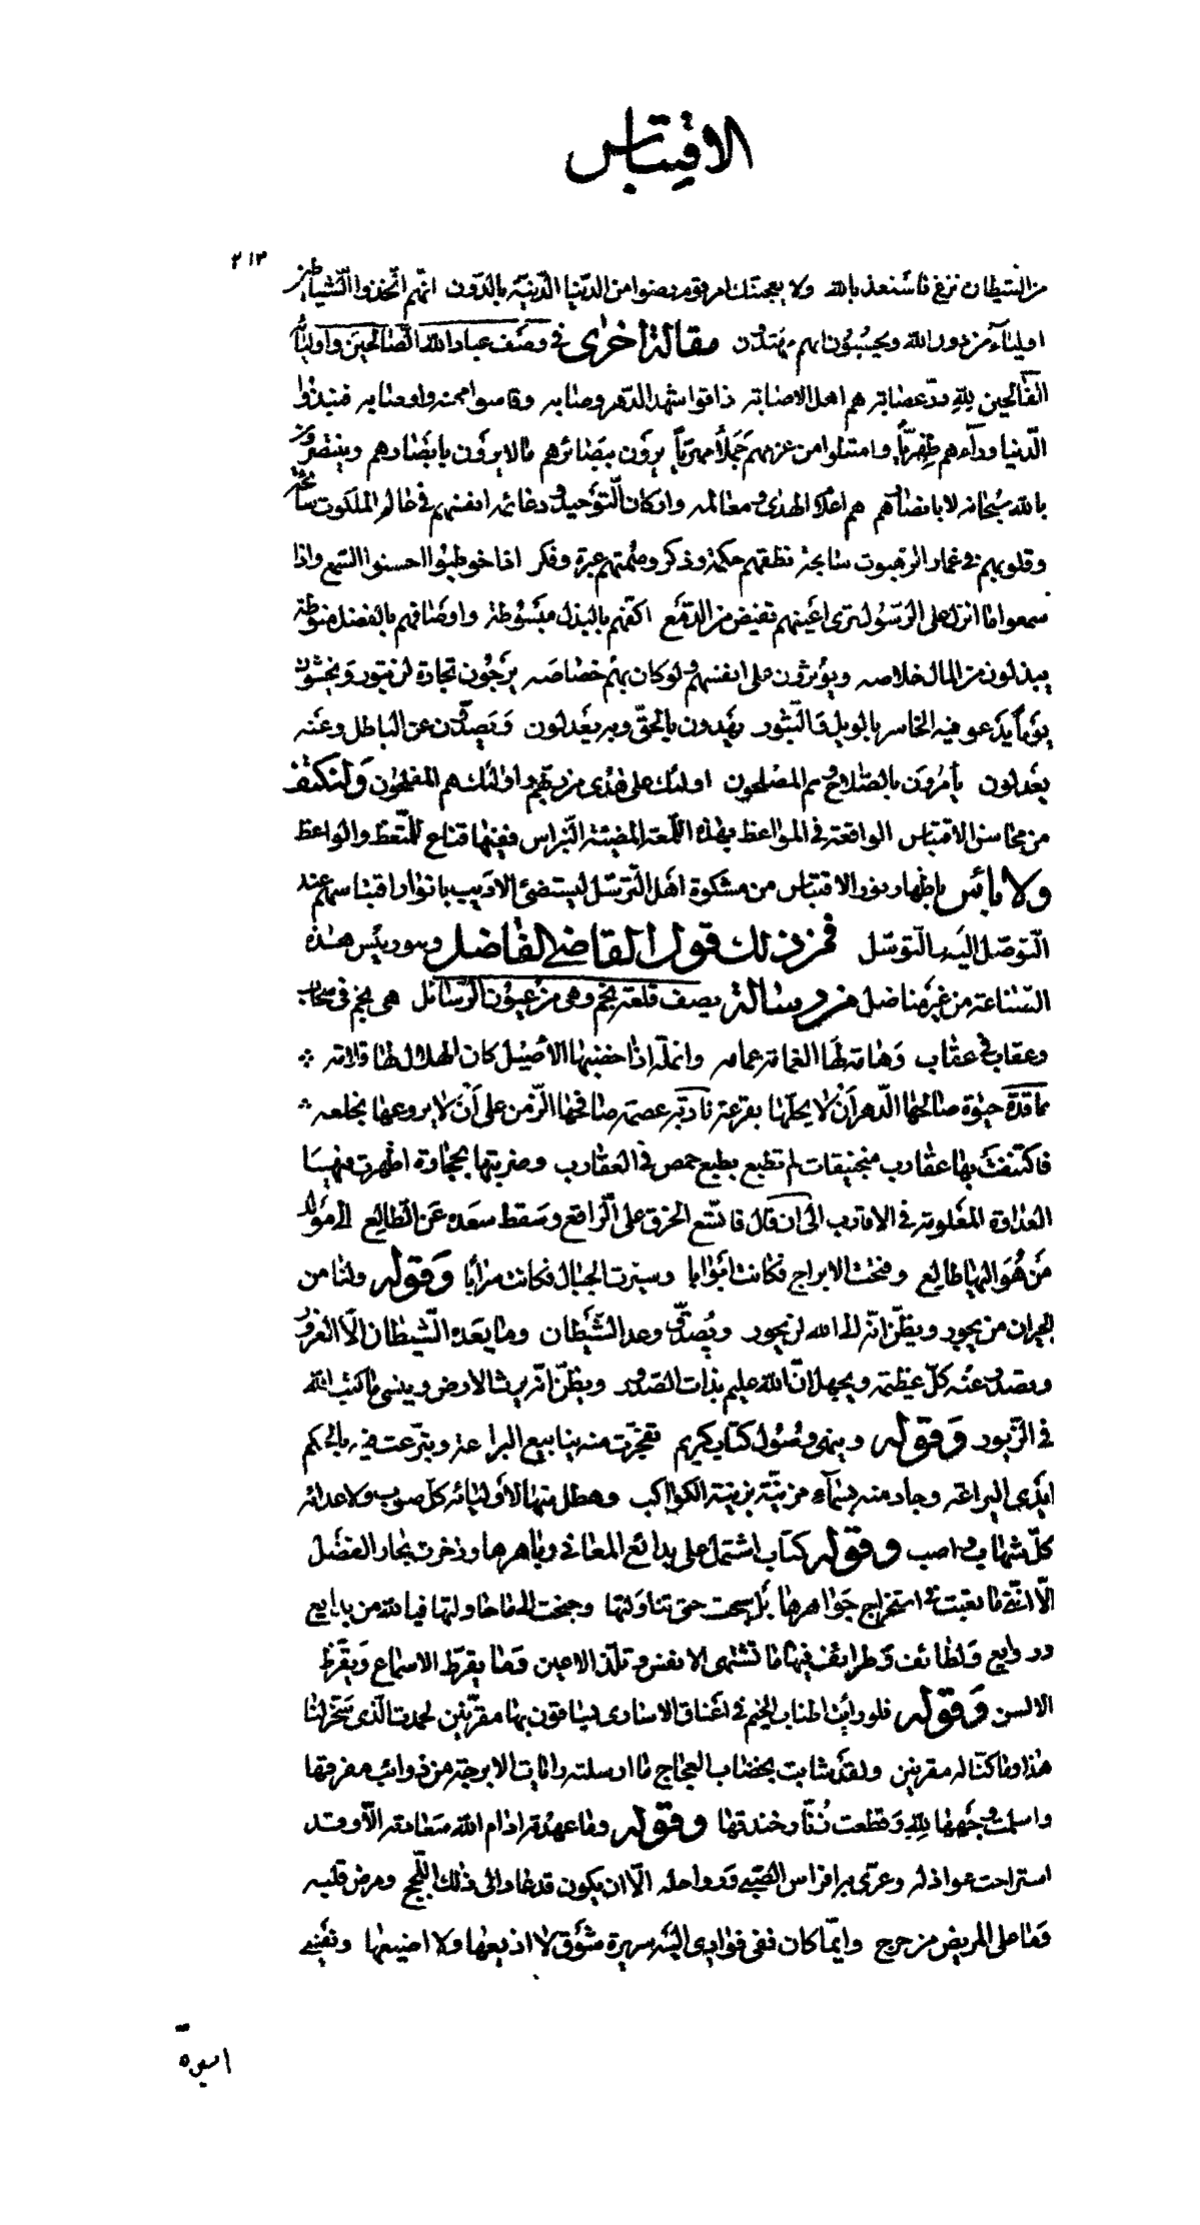 الاقتباس
٢١٣
من الشيطان نزغ فاستعذ بالله ولا يعجبنك امر قوم رضوا من الدنيا الدنية بالدون انهم اتخذوا الشياطين
اولياء من دون الله ويحسبون انهم مهتدون مقالة اخرى في وصف عباد الله الصالحين واوليائه
الفالحين لله در عصابة هم اهل الاصابة ذاقوا شهد الدهر وصابه وقاسوا محنه واوصابه فنبذوا
الدنيا وراءهم ظهرياً وامتطوا من عزمهم جملاً مهرياً يرون ببصائرهم ما لا يرون بابصارهم وينتصرون
بالله سبحانه لا بانصارهم هم اعلام الهدى ومعالمه واركان التوحيد ودعائمه انفسهم في عالم الملكوت سائحة
وقلوبهم في غمار الرهبوت سابحة نطقهم حكمة وذكر وصمتهم عبرة وفكر اذا خوطبوا احسنوا السمع واذا
سمعوا ما انزل على الرسول ترى اعينهم تفيض من الدمع اكفهم بالبذل مبسوطة واوصافهم بالفضل منوطة
يبذلون من المال خلاصه ويؤثرون على انفسهم ولو كان بهم خصاصه يرجون تجارة لن تبور ويخشون
يوماً يدعو فيه الخاسر بالويل والثبور يهدون بالحق وبه يعدلون ويصدون عن الباطل وعنه
يعدلون يأمرون بالصلاح وهم المصلحون اولئك على هدى من ربهم واولئك هم المفلحون ولنكتف
من محاسن الاقتباس الواقعة في المواعظ بهذه اللمعة المضيئة النبراس ففيها قناع للمتعظ والواعظ
ولا بأس باظهار نور الاقتباس من مشكوة اهل الترسل ليستضئ الاديب بانوار اقتباسهم عند
التوصل اليه بالتوسل فمن ذلك قول القاضي الفاضل وهو رئيس هذه
الصناعة من غير مناضل من رسالة يصف قلعة نجم وهي من عيون الرسائل هي نجم في سحاب
وعقاب في عقاب وهامة لها الغمامة عمامه وانملة اذا خضبها الاصيل كان الهلال لها قلامه
عاقدة حبوة صالحها الدهر ان لا يحلها بقرعه نادبة عصمة صافحها الزمن على ان لا يروعها بخلعه
فاكتنفت بها عقارب منجنيقات لم تطبع بطبع حمص في العقارب وضربتها بحجارة اظهرت فيها
العداوة المعلومة في الاقارب الى ان قال فاتسع الخرق على الراقع وسقط سعده عن الطالع الى مولد
من هو اليها طالع وفتحت الابراج فكانت ابوابا وسيرت الجبال فكانت سرابا وقوله ولنا من
الجيران من يجور ويظن انه الى الله لن يحور ويصدق وعد الشيطان وما يعده الشيطان الا الغرور
ويصدر عنه كل عظيمة ويجهل ان الله عليم بذات الصدور ويظن انه يرث الارض وينسى ما كتب الله
في الزبور وقوله وينهى وصول كتاب كريم تفجرت منه ينابيع البراعة وتبرعت فيه بالحكم
ايدى اليراعه وجاد منه بسماء مزينة بزينة الكواكب وهطل منها لاوليائه كل صوب ولاعدائه
كل شهاب واصب وقوله كتاب اشتمل على بدائع المعاني وباهرها وزخرت بحار الفضل
الا انني ما تعبت في استخراج جواهرها بل سبحت حتى تناولتها وجنحت الي فما حاولتها فيا لله من بدايع
وروايع ولطائف وطرائف فيها ما تشتهى الانفس وتلذ الاعين وما يقرط الاسماع ويقرظ
الالسن وقوله فلو رأيت اطناب الخيم في اعناق الاسارى يساقون بها مقرنين لحمدت الذى سخر لنا
هذا وما كنا له مقرنين ولقد شابت بخضاب العجاج ما ارسلته راياتها الابرجة من ذوائب مفرقها
واسلمت وجهها لله وقطعت زنار خندقها وقوله وما عهدته ادام الله سعادته الا وقد
استراحت عواذله وعرى به افراس الصبى ورواحله الا ان يكون قد عاد الى ذلك اللجج ومرض قلبه
وما على المريض من حرج وايما كان ففى فوادى اليه سريرة شوق لا اذيعها ولا اضيعها ونفسي
اسيرة